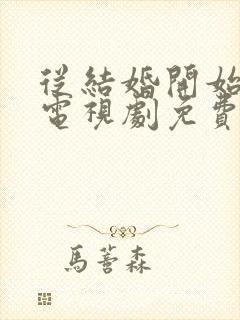 從結婚開始
電視劇免費
馬蓍森